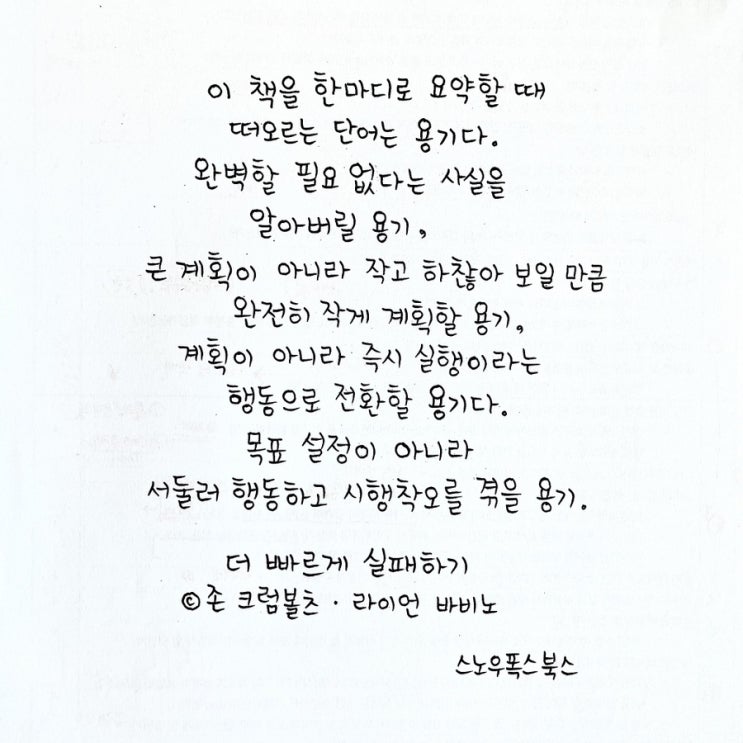 이 책을 한마디로 요약할 때
떠오르는 단어는 용기다.
완벽할 필요 없다는 사실을
알아버릴 용기,
큰 계획이 아니라 작고 하찮아 보일 만큼
완전히 작게 계획할 용기,
계획이 아니라 즉시 실행이라는
행동으로 전환할 용기다.
목표 설정이 아니라
서둘러 행동하고 시행착오를 겪을 용기.
더 빠르게 실패하기
©존 크럼볼츠 · 라이언 바비노
스노우폭스북스